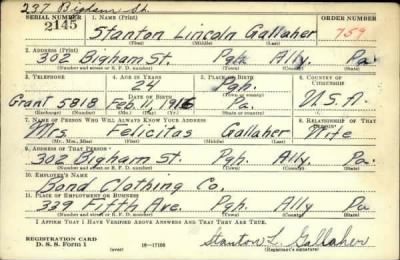 237 Bigham St.
SERIAL NUMBER 1. NAME (Print) ORDER NUMBER
2145 Stanton Lincoln Gallaher 759
(First) (Middle) (Last)
2. ADDRESS (Print)
302 Bigham St. Pgh. Ally. Pa.
(Number and street or R. F. D. number) (Town) (County) (State)
3. TELEPHONE 4. AGE IN YEARS 5. PLACE OF BIRTH 6. COUNTRY OF CITIZENSHIP
24 Pgh.
DATE OF BIRTH (Town or county)
Grant 5818 Feb. 11, 1916 Pa. U.S.A.
(Exchange) (Number) (Mo.) (Day) (Yr.) (State or country)
7. NAME OF PERSON WHO WILL ALWAYS KNOW YOUR ADDRESS 8. RELATIONSHIP OF THAT PERSON
Mrs. Felicitas Gallaher Wife
(Mr., Mrs., Miss) (First) (Middle) (Last)
9. ADDRESS OF THAT PERSON
302 Bigham St. Pgh. Ally. Pa.
(Number and street or R. F. D. number) (Town) (County) (State)
10. EMPLOYER'S NAME
Bond Clothing Co.
11. PLACE OF EMPLOYMENT OR BUSINESS
339 Fifth Ave. Pgh. Ally Pa
(Number and street or R. F. D. number) (Town) (County) (State)
I AFFIRM THAT I HAVE VERIFIED ABOVE ANSWERS AND THAT THEY ARE TRUE.
REGISTRATION CARD
D. S. S. Form 1 (over) 16-17105 Stanton L. Gallaher
(Registrant's signature)